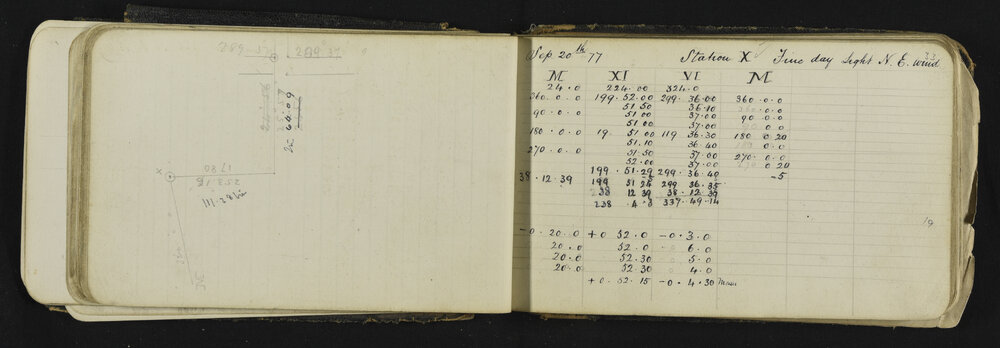 289
299 37
1780
253.15
X
Sep 20th 77 Station X Fine day Light N. E. wind 33
M XI VI M
24.0 224.00 324.0
360.0.0 199.52.00 299.36.00 360.0.0
51.50 36.10
90.0.0 51.00 37.00 90.0.0
51.00 37.00 0.0
180.0.0 19. 51.00 119 36.30 180 0.20
51.10 36 40 0.0
270.0.0 51.50 37.00 270.0.0
52.00 37.00 0 20
199.51.29 299.36.40 -5
38.12.39 199 51 24 299 36.35
238 12 39 38.12.39
238 .4.3 337.49.14
19
-0.20.0 +0 52.0 -0.3.0
20.0 52.0 6.0
20.0 52.30 5.0
20.0 52.30 4.0
+0.52.15 -0.4.30 Mean